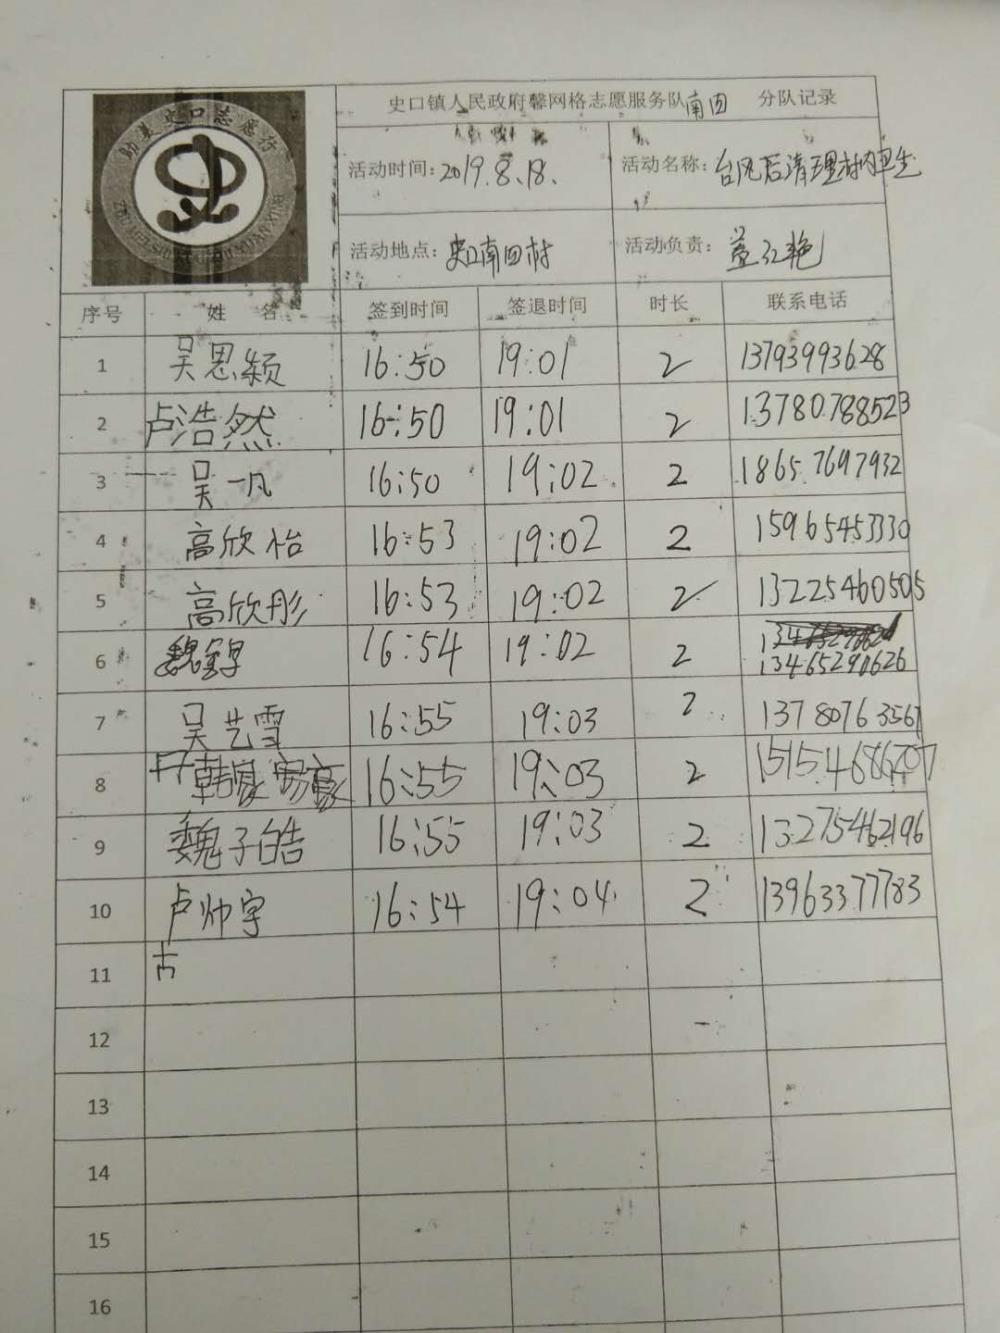 助美史口志愿行
史口镇人民政府馨网格志愿服务队南四 分队记录
活动时间：2019.8.18. 活动名称：台风后清理村内卫生
活动地点：史口南四村 活动负责：盖红艳
序号 姓 名 签到时间 签退时间 时长 联系电话
1 吴思颖 16:50 19:01 2 13793993628
2 卢浩然 16:50 19:01 2 13780788523
3 吴一凡 16:50 19:02 2 18657697932
4 高欣怡 16:53 19:02 2 15965453330
5 高欣彤 16:53 19:02 2 13225460505
6 16:54 19:02 2 13465290626
7 吴艺雪 16:55 19:03 2 13780763567
8 16:55 19:03 2
9 魏子皓 16:55 19:03 2 13275462196
10 卢帅宇 16:54 19:04 2 13963377783
11
12
13
14
15
16